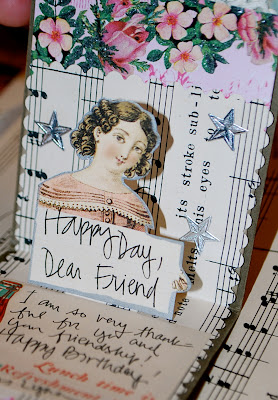 its stroke sub-
his eyes to
Happy Day,
Dear Friend
I am so very thank-
ful for you and
your friendship!
Happy Birthday!
Lunch time
Refreshment